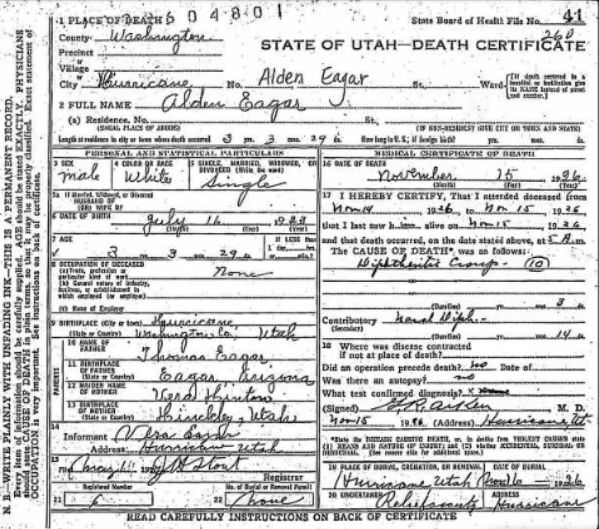 1 PLACE OF DEATH 504801 State Board of Health File No. 41
County Washington 260
Precinct or STATE OF UTAH—DEATH CERTIFICATE
Village or
City Hurricane No. Alden Eagar St., Ward
[If death occurred in a hospital or institution give its NAME instead of street and number.]
2 FULL NAME Alden Eagar
(a) Residence. No. St.,
(USUAL PLACE OF ABODE) (IF NON-RESIDENT GIVE CITY OR TOWN AND STATE)
Length of residence in city or town where death occurred 3 yrs. 3 mos. 29 ds. How long in U.S., if foreign birth? yrs. mos. ds.
PERSONAL AND STATISTICAL PARTICULARS
3 SEX 4 COLOR OR RACE 5 SINGLE, MARRIED, WIDOWED, OR DIVORCED (Write the word)
male White Single
5a If Married, Widowed, or Divorced
HUSBAND OF
(OR) WIFE OF
6 DATE OF BIRTH July 16 1923
(Month) (Day) (Year)
7 AGE IF LESS than
3 3 29
8 OCCUPATION OF DECEASED
(a) Trade, profession or particular kind of work None
(b) General nature of industry, business, or establishment in which employed (or employer)
(c) Name of Employer
9 BIRTHPLACE (City or town) Hurricane
(State or Country) Washington Co, Utah
PARENTS
10 NAME OF FATHER Thomas Eagar
11 BIRTHPLACE OF FATHER Eagar, Arizona
(State or Country)
12 MAIDEN NAME OF MOTHER Vera Hinton
13 BIRTHPLACE OF MOTHER Hinckley, Utah
(State or Country)
14
Informant Vera Eagar
Address Hurricane Utah
15
Stout
Registered Number No. of Burial or Removal Permit
21 6 22 None
MEDICAL CERTIFICATE OF DEATH
16 DATE OF DEATH
November 15 1926
(Month) (Day) (Year)
17 I HEREBY CERTIFY, That I attended deceased from
Nov 14, 1926, to Nov 15, 1926
that I last saw him alive on Nov 15, 1926
and that death occurred, on the date stated above, at 5 A.m.
The CAUSE OF DEATH*, was as follows:
Diphtheritic Croup - (10)
(Duration) yrs. mos. 3 ds.
Contributory Nasal Diph.
(Secondary)
(Duration) yrs. mos. 14 ds.
18 Where was disease contracted
if not at place of death?
Did an operation precede death? No Date of
Was there an autopsy? no
What test confirmed diagnosis?
(Signed) M. D.
Nov 15 1926 (Address) Hurricane, Ut
*State the DISEASE CAUSING DEATH, or, in deaths from VIOLENT CAUSES state (1) MEANS AND NATURE OF INJURY; and (2) whether ACCIDENTAL, SUICIDAL OR HOMICIDAL. (See reverse side for additional space.)
19 PLACE OF BURIAL, CREMATION, OR REMOVAL DATE OF BURIAL
Hurricane Utah Nov 16 - 1926
20 UNDERTAKER ADDRESS
Relief society Hurricane
READ CAREFULLY INSTRUCTIONS ON BACK OF CERTIFICATE
N. B.—WRITE PLAINLY WITH UNFADING INK—THIS IS A PERMANENT RECORD.
Every item of information should be carefully supplied. AGE should be stated EXACTLY. PHYSICIANS
should state CAUSE OF DEATH in plain terms, so that it may be properly classified. Exact statement of
OCCUPATION is very important. See instructions on back of certificate.